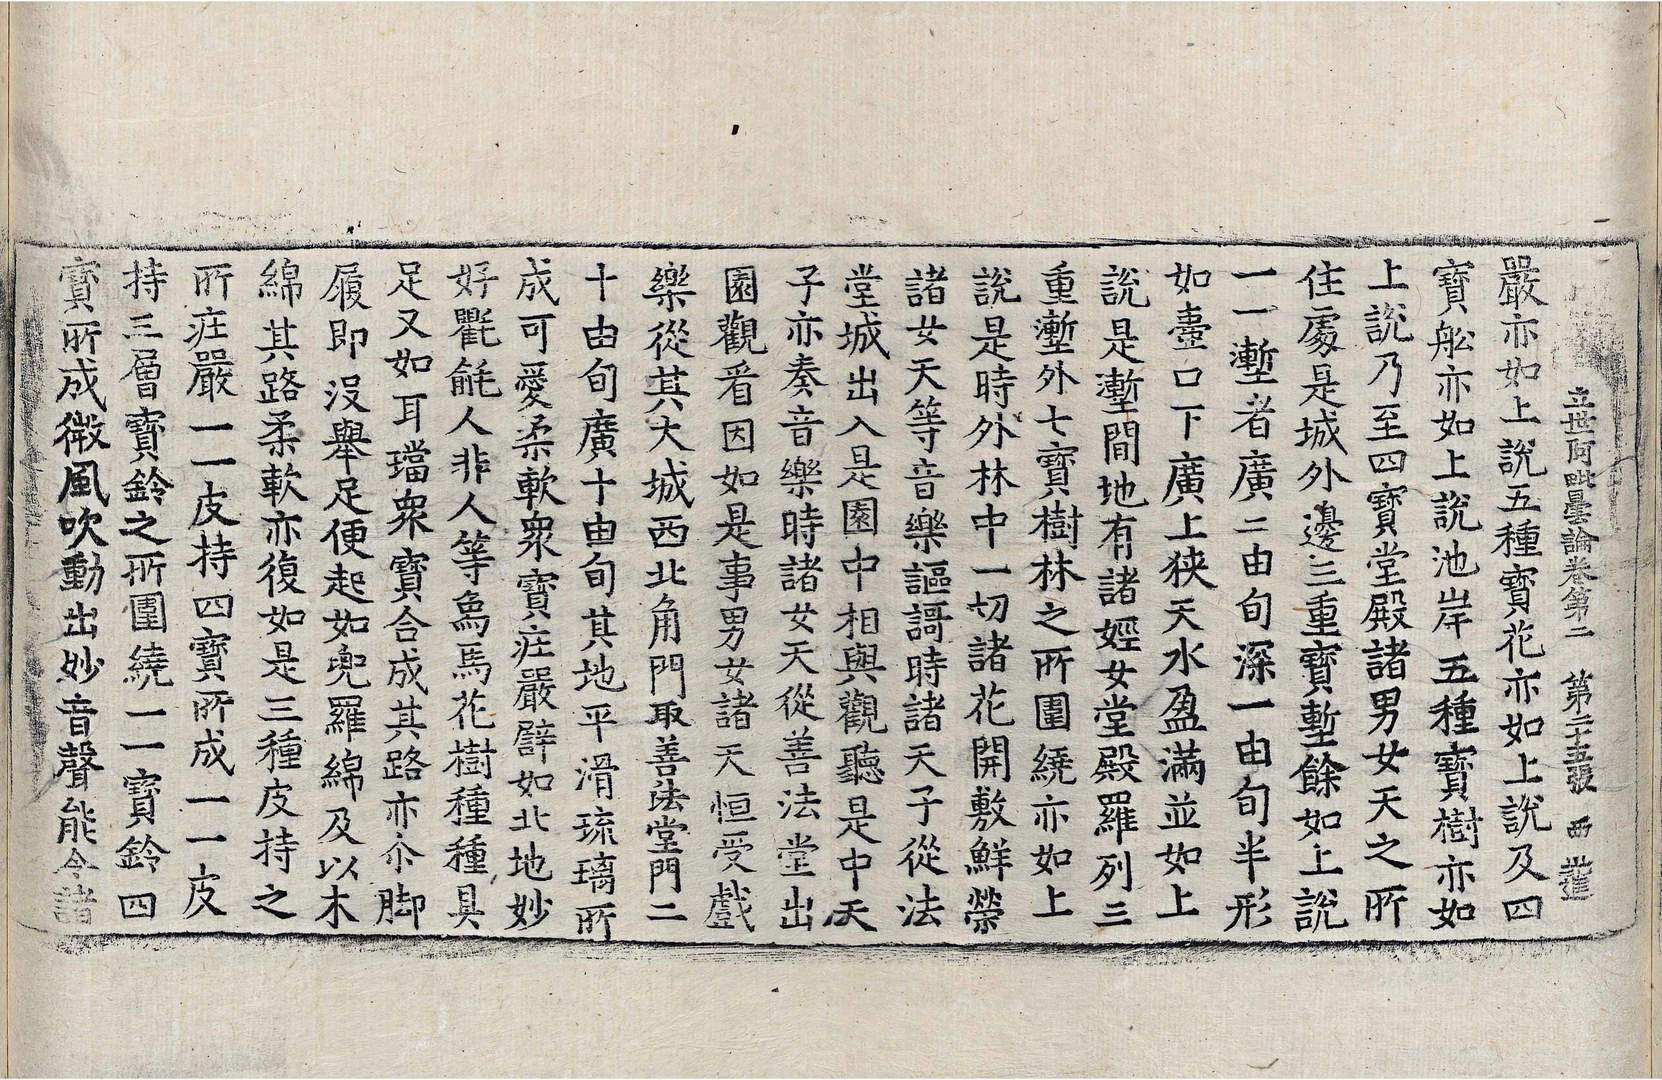 立世阿毗曇論卷第二　第二十五張　西
嚴亦如上說五種寶花亦如上說及四
寶舩亦如上說池岸五種寶樹亦如
上說乃至四寶堂殿諸男女天之所
住處是城外邊三重寶塹餘如上說
一一塹者廣二由旬深一由旬半形
如壼口下廣上狹天水盈滿並如上
說是塹間地有諸婬女堂殿羅列三
重塹外七寶樹林之所圍繞亦如上
說是時外林中一切諸花開敷鮮榮
諸女天等音樂謳謌時諸天子從法
堂城出入是園中相與觀聽是中天
子亦奏音樂時諸女天從善法堂出
園觀看因如是事男女諸天恒受戲
樂從其大城西北角門取善法堂門二
十由旬廣十由旬其地平滑琉璃所
成可愛柔軟衆寶莊嚴譬如北地妙
好氍毹人非人等鳥馬花樹種種具
足又如耳璫衆寶合成其路亦尒脚
履即沒舉足便起如兜羅綿及以木
綿其路柔軟亦復如是三種皮持之
所莊嚴一一皮持四寶所成一一皮
持三層寶鈴之所圍繞一一寶鈴四
寶所成微風吹動出妙音聲能令諸